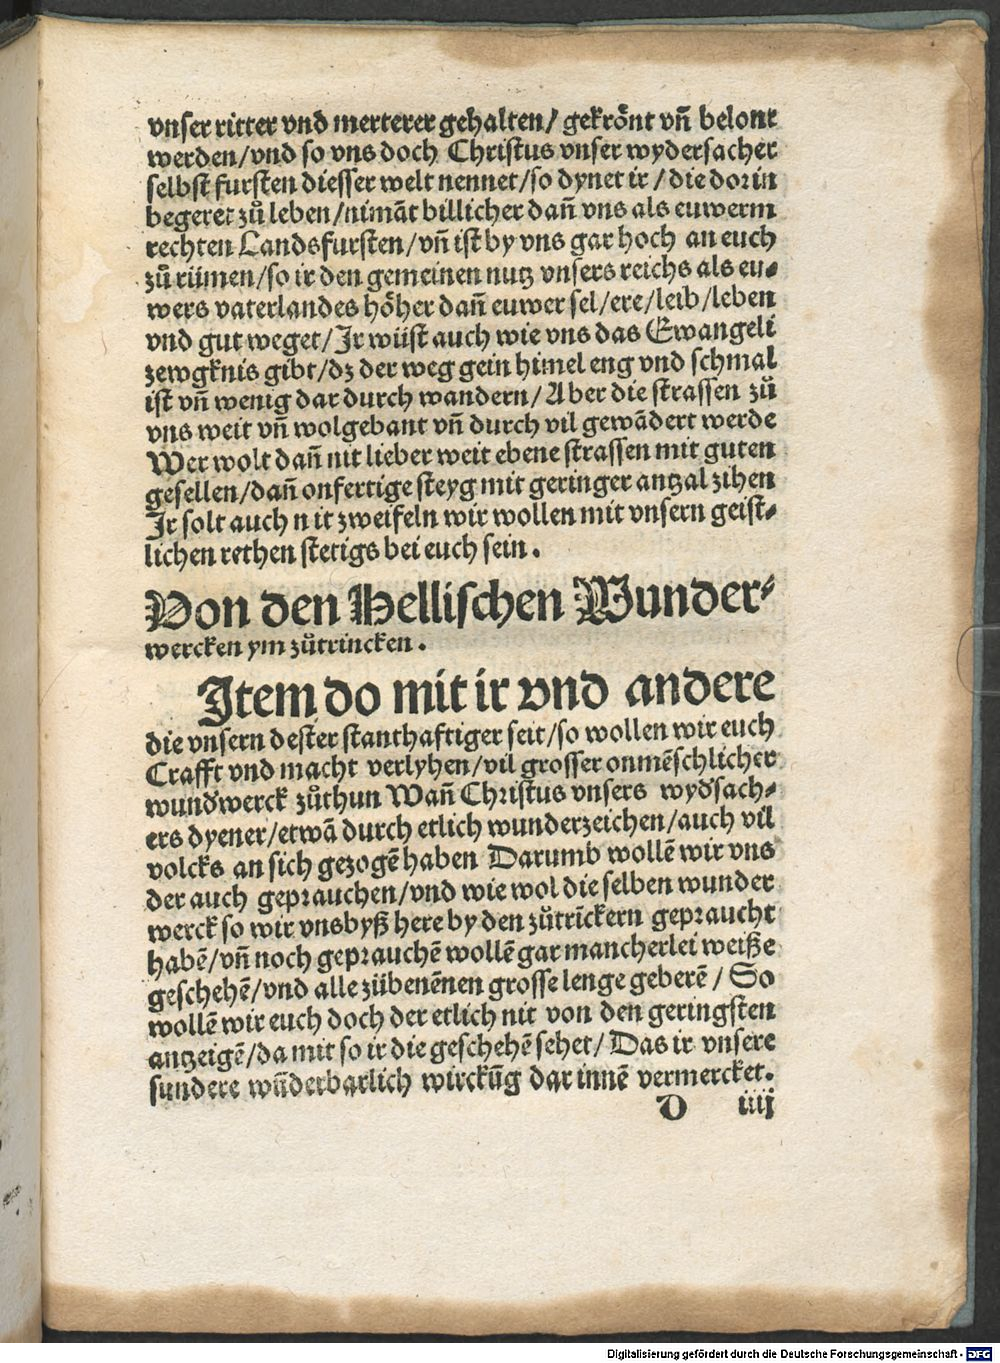 vnser ritter vnd merterer gehalten/ gekrönt vñ belont
werden/vnd so vns doch Christus vnser wydersacher
selbst fursten diesser welt nennet/so dynet ir/die dorin
begeret zů leben/nimāt billicher dañ vns als euwerm
rechten Landsfursten/vñ ist by vns gar hoch an euch
zů rümen/so ir den gemeinen nutz vnsers reichs als eu⸗
wers vaterlandes höher dañ euwer sel/ere/leib/leben
vnd gut weget/Jr wüst auch wie vns das Ewangeli
zewgknis gibt/dz der weg gein himel eng vnd schmal
ist vñ wenig dar durch wandern/Aber die strassen zů
vns weit vñ wolgebant vñ durch vil gewādert werde
Wer wolt dañ nit lieber weit ebene strassen mit guten
gesellen/dañ onfertige steyg mit geringer antzal zihen
Jr solt auch nit zweifeln wir wollen mit vnsern geist⸗
lichen rethen stetigs bei euch sein.
Von den Hellischen Wunder⸗
wercken ym zůtrincken.
Jtem do mit ir vnd andere
die vnsern dester stanthaftiger seit/so wollen wir euch
Crafft vnd macht verlyhen/vil grosser onmēschlicher
wund'werck zůthun Wañ Christus vnsers wyd'sach⸗
ers dyener/etwā durch etlich wunderzeichen/auch vil
volcks an sich gezogē haben Darumb wollē wir vns
der auch geprauchen/vnd wie wol die selben wunder
werck so wir vnsbyß here by den zůtrīckern gepraucht
habē/vñ noch geprauchē wollē gar mancherlei weiße
geschehē/vnd alle zübenēnen grosse lenge geberē/ So
wollē wir euch doch der etlich nit von den geringsten
antzeigē/da mit so ir die geschehē sehet/Das ir vnsere
sundere wūderbarlich wirckūg dar innē vermercket.
D iiij
Digitalisierung gefördert durch die Deutsche Forschungsgemeinschaft - DFG